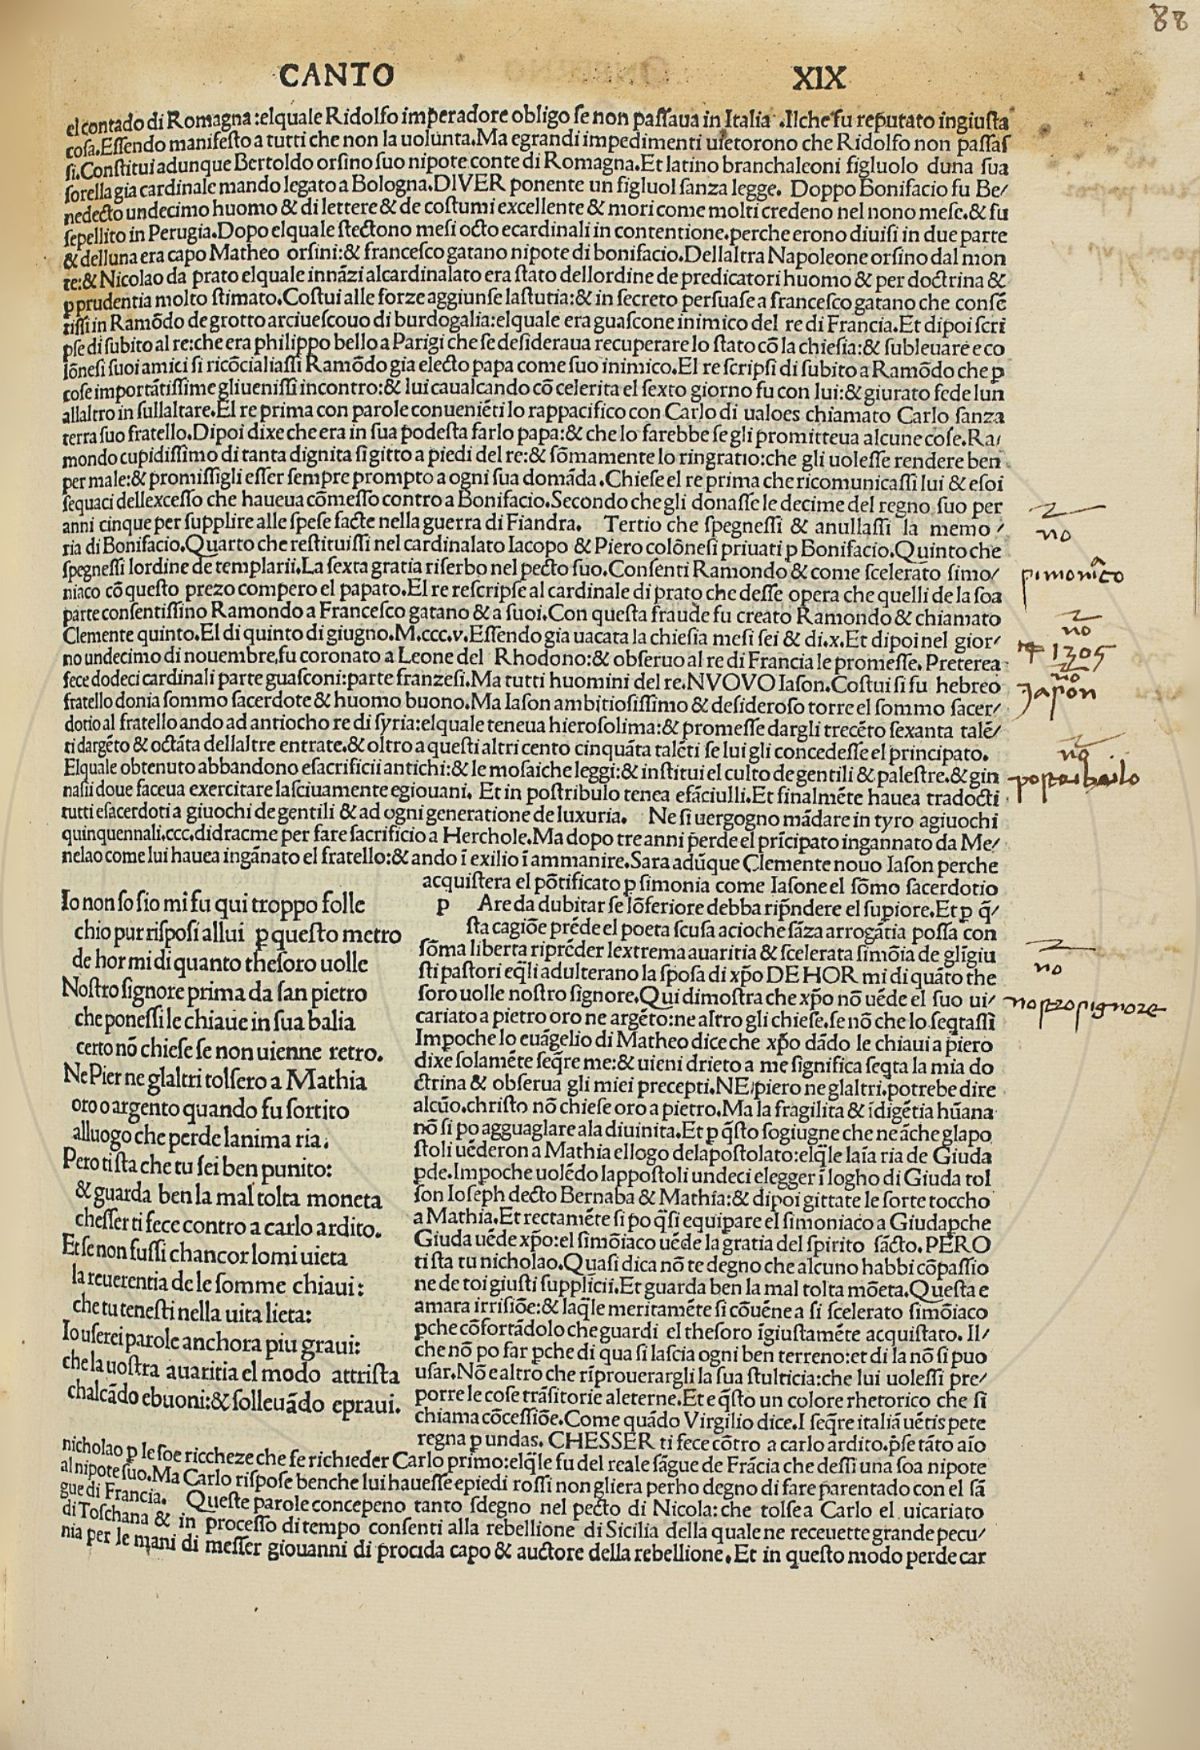 88
CANTO XIX
el contado di Romagna:elquale Ridolfo imperadore obligo se non passaua in Italia .Ilche fu reputato ingiusta
cosa.Essendo manifesto a tutti che non la uolunta.Ma egrandi impedimenti uietorono che Ridolfo non passas
si.Constitui adunque Bertoldo orsino suo nipote conte di Romagna.Et latino branchaleoni figluolo duna sua
sorella gia cardinale mando legato a Bologna.DIVER ponente un figluol sanza legge. Doppo Bonifacio fu Be/
nedecto undecimo huomo & di lettere & de costumi excellente & mori come molti credeno nel nono mese.& fu
sepellito in Perugia.Dopo elquale stectono mesi octo ecardinali in contentione.perche erono diuisi in due parte
& delluna era capo Matheo orsini:& francesco gatano nipote di bonifacio.Dellaltra Napoleone orsino dal mon
te:& Nicolao da prato elquale innāzi alcardinalato era stato dellordine de predicatori huomo & per doctrina &
p prudentia molto stimato.Costui alle forze aggiunse lastutia:& in secreto persuase a francesco gatano che consē
tissi in Ramōdo de grotto arciuescouo di burdogalia:elquale era guascone inimico del re di Francia.Et dipoi scri
pse di subito al re:che era philippo bello a Parigi che se desideraua recuperare lo stato cō la chiesia:& subleuare e co
lōnesi suoi amici si ricōcialiassi Ramōdo gia electo papa come suo inimico.El re scripsi di subito a Ramōdo che p
cose importātissime gliuenissi incontro:& lui caualcando cō celerita el sexto giorno fu con lui:& giurato fede lun
allaltro in sullaltare.El re prima con parole conueniēti lo rappacifico con Carlo di ualoes chiamato Carlo sanza
terra suo fratello.Dipoi dixe che era in sua podesta farlo papa:& che lo farebbe se gli promitteua alcune cose.Ra/
mondo cupidissimo di tanta dignita si gitto a piedi del re:& sōmamente lo ringratio:che gli uolesse rendere ben
per male:& promissigli esser sempre prompto a ogni sua domāda.Chiese el re prima che ricomunicassi lui & esoi
sequaci dellexcesso che haueua cōmesso contro a Bonifacio.Secondo che gli donasse le decime del regno suo per
anni cinque per supplire alle spese facte nella guerra di Fiandra. Tertio che spegnessi & anullassi la memo /
ria di Bonifacio.Quarto che restituissi nel cardinalato Iacopo & Piero colōnesi priuati p Bonifacio.Quinto che
spegnessi lordine de templarii.La sexta gratia riserbo nel pecto suo.Consenti Ramondo & come scelerato simo/
niaco cō questo prezo compero el papato.El re rescripse al cardinale di prato che desse opera che quelli de la soa
parte consentissino Ramondo a Francesco gatano & a suoi.Con questa fraude fu creato Ramondo & chiamato
Clemente quinto.El di quinto di giugno.M.ccc.v.Essendo gia uacata la chiesia mesi sei & di.x.Et dipoi nel gior/
no undecimo di nouembre,fu coronato a Leone del Rhodono:& obseruo al re di Francia le promesse.Preterea
fece dodeci cardinali parte guasconi:parte franzesi.Ma tutti huomini del re.NVOVO Iason.Costui si fu hebreo
fratello donia sommo sacerdote & huomo buono.Ma Iason ambitiosissimo & desideroso torre el sommo sacer/
dotio al fratello ando ad antiocho re di syria:elquale teneua hierosolima:& promesse dargli trecēto sexanta talē/
ti dargēto & octāta dellaltre entrate.& oltro a questi altri cento cinquāta talēti se lui gli concedesse el principato.
Elquale obtenuto abbandono esacrificii antichi:& le mosaiche leggi:& institui el culto de gentili & palestre.& gin
nasii doue faceua exercitare lasciuamente egiouani. Et in postribulo tenea efāciulli.Et finalmēte hauea tradocti
tutti esacerdoti a giuochi de gentili & ad ogni generatione de luxuria. Ne si uergogno mādare in tyro agiuochi
quinquennali.ccc.didracme per fare sacrificio a Herchole.Ma dopo tre anni perde el prīcipato ingannato da Me/
nelao come lui hauea ingānato el fratello:& ando ī exilio ī ammanire.Sara adūque Clemente nouo Iason perche
acquistera el pōtificato p simonia come Iasone el sōmo sacerdotio
Io non so sio mi fu qui troppo folle
chio pur risposi allui p questo metro
de hor mi di quanto thesoro uolle
Nostro signore prima da san pietro
che ponessi le chiaue in sua balia
certo nō chiese se non uienne retro.
Ne Pier ne glaltri tolsero a Mathia
oro o argento quando fu sortito
alluogo che perde lanima ria.
Pero ti sta che tu sei ben punito:
& guarda ben la mal tolta moneta
chesser ti fece contro a carlo ardito.
Et se non fussi chancor lo mi uieta
la reuerentia de le somme chiaui:
che tu tenesti nella uita lieta:
Io userei parole anchora piu graui:
che la uostra auaritia el modo attrista
chalcādo ebuoni:& solleuādo epraui.
p Are da dubitar se lōferiore debba ripn̄dere el supiore.Et p q̄/
sta cagiōe prēde el poeta scusa acioche sāza arrogātia possa con
sōma liberta riprēder lextrema auaritia & scelerata simōia de gligiu
sti pastori eq̄li adulterano la sposa di xp̄o DE HOR mi di quāto the
soro uolle nostro signore.Qui dimostra che xp̄o nō uēde el suo ui/
cariato a pietro oro ne argēto:ne altro gli chiese.se nō che lo seq̄tassi
Impoche lo euāgelio di Matheo dice che xp̄o dādo le chiaui a piero
dixe solamēte seq̄re me:& uieni drieto a me significa seq̄ta la mia do
ctrina & obserua gli miei precepti.NE piero ne glaltri.potrebe dire
alcūo.christo nō chiese oro a pietro.Ma la fragilita & īdigētia hūana
nō si po agguaglare ala diuinita.Et p q̄sto sogiugne che ne āche glapo
stoli uēderon a Mathia ellogo delapostolato:elq̄le laīa ria de Giuda
pde.Impoche uolēdo lappostoli undeci elegger ī logho di Giuda tol
son Ioseph decto Bernaba & Mathia:& dipoi gittate le sorte toccho
a Mathia.Et rectamēte si po q̄si equipare el simoniaco a Giuda pche
Giuda uēde xp̄o:el simōiaco uēde la gratia del spirito sācto.PERO
ti sta tu nicholao.Quasi dica nō te degno che alcuno habbi cōpassio
ne de toi giusti supplicii.Et guarda ben la mal tolta mōeta.Questa e
amara irrisiōe:& laq̄le meritamēte si cōuēne a si scelerato simōiaco
pche cōfortādolo che guardi el thesoro īgiustamēte acquistato. Il/
che nō po far pche di qua si lascia ogni ben terreno:et di la nō si puo
usar.Nō e altro che rīprouerargli la sua stulticia:che lui uolessi pre/
porre le cose trāsitorie aleterne.Et e q̄sto un colore rhetorico che si
chiama cōcessiōe.Come quādo Virgilio dice.I seq̄re italiā uētis pete
regna p undas. CHESSER ti fece cōtro a carlo ardito.p̄se tāto aīo
nicholao p le soe riccheze che se richieder Carlo primo:elq̄le fu del reale sāgue de Frācia che dessi una soa nipote
al nipote suo.Ma Carlo rispose benche lui hauesse epiedi rossi non gliera perho degno di fare parentado con el sā
gue di Francia. Queste parole concepeno tanto sdegno nel pecto di Nicola:che tolse a Carlo el uicariato
di Toschana & in processo di tempo consenti alla rebellione di Sicilia della quale ne receuette grande pecu/
nia per le mani di messer giouanni di procida capo & auctore della rebellione.Et in questo modo perde car
no
simonico
no
1305
no
Jason
no
postribilo
no
nostro signore